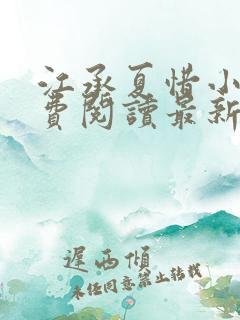 江承夏惜小
費閱讀最新
遲西傾
未经同意禁止转载